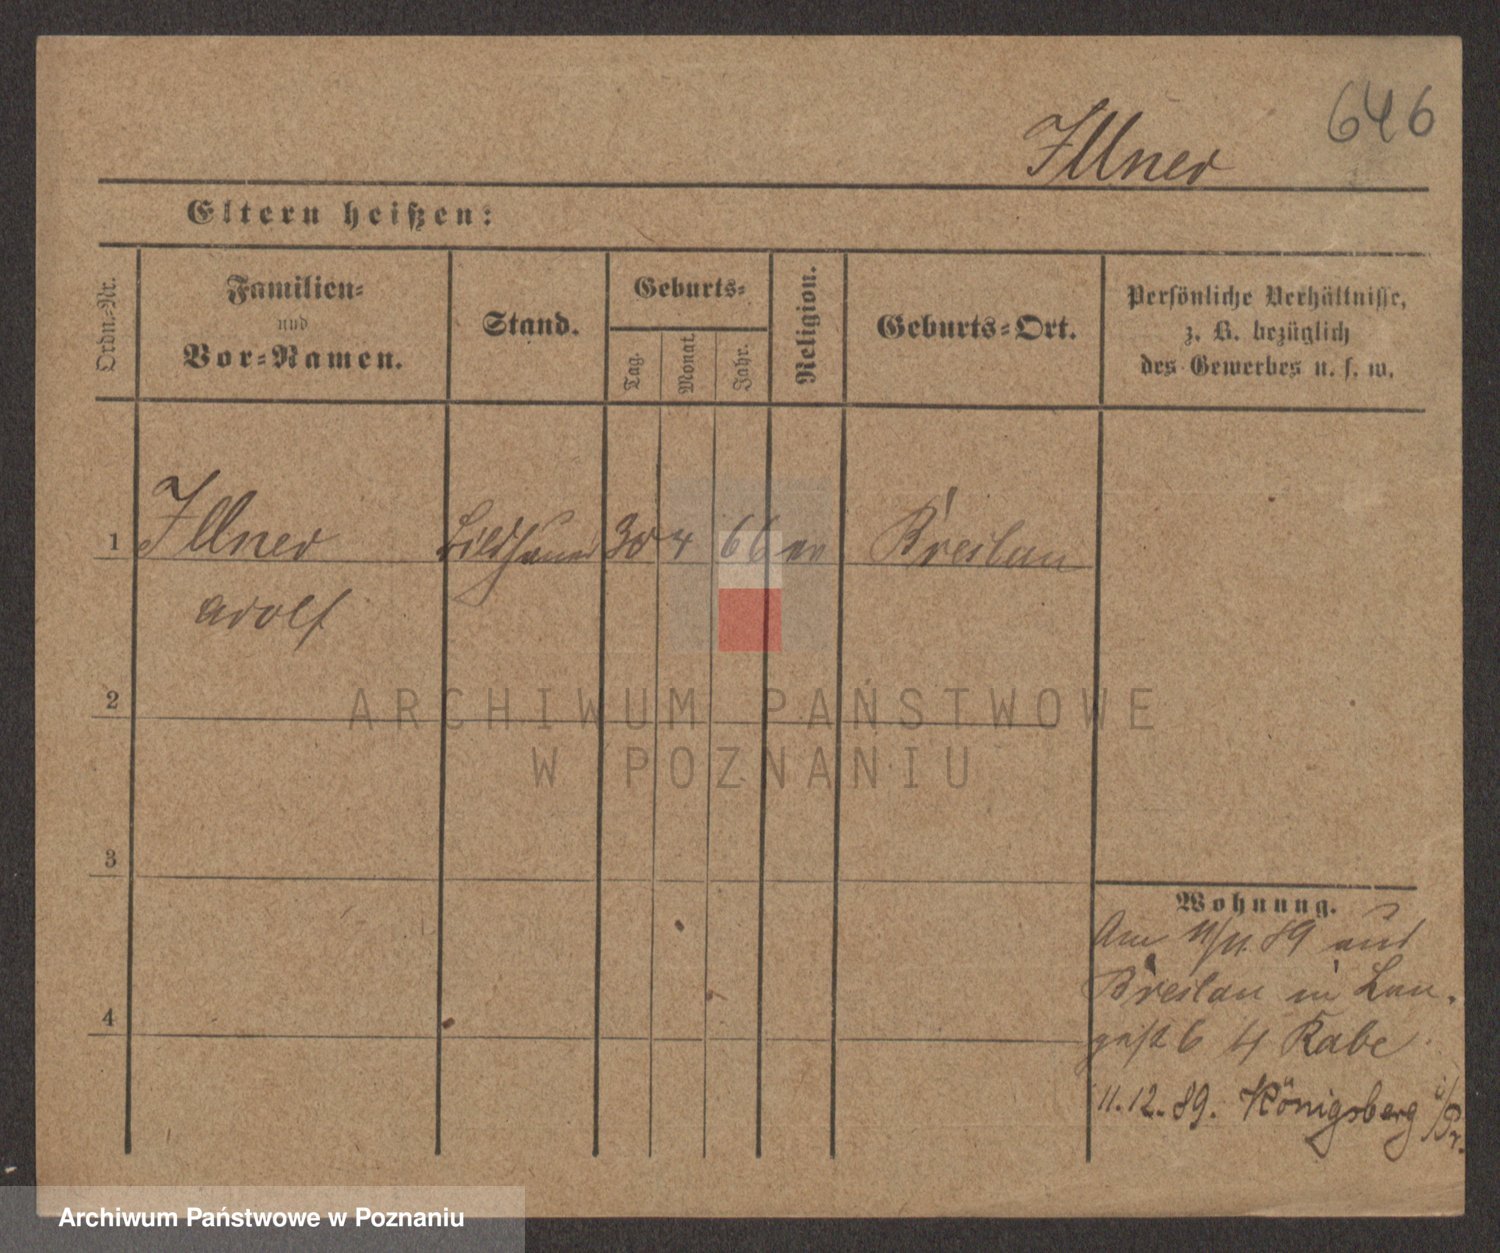 646
Illner
Eltern heißen:
Ordn.-Nr.
Familien-
und
Vor-Namen.
Stand.
Geburts-
Tag.
Monat.
Jahr.
Religion.
Geburts-Ort.
Persönliche Verhältnisse,
z. B. bezüglich
des Gewerbes u. s. w.
1 Illner Bildhauer 30 4 66 ev Breslau
Adolf
2
ARCHIWUM PAŃSTWOWE
W POZNANIU
3
Wohnung.
Am 11/11. 89 aus
Breslau in Lan-
gestr 6 b/ Rabe
4
11.12.89. Königsberg i/Pr.
Archiwum Państwowe w Poznaniu